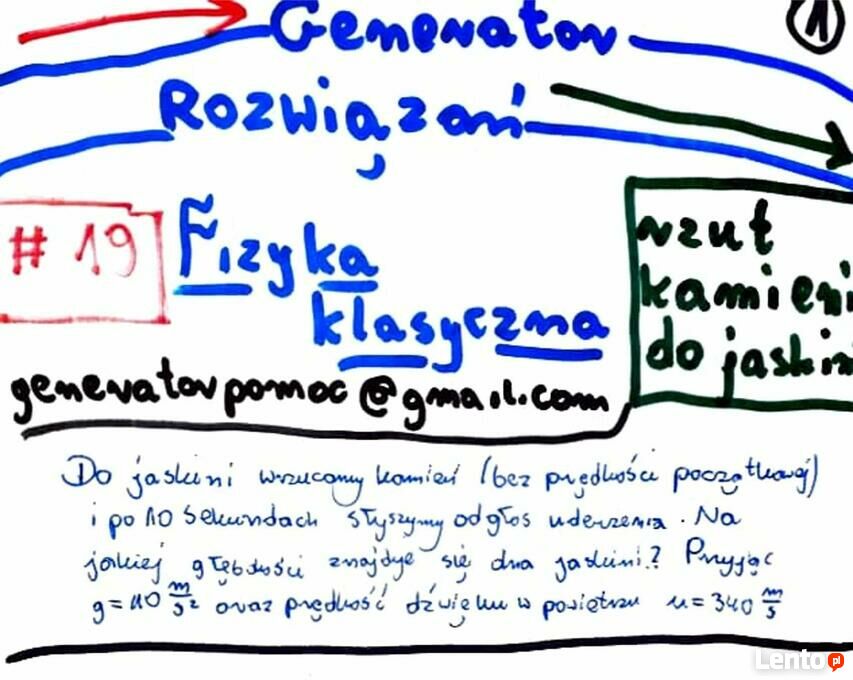 Generator
1
Rozwiązań
# 19
Fizyka
klasyczna
rzut
kamieni
do jaskini
generatorpomoc@gmail.com
Do jaskini wrzucamy kamień (bez prędkości początkowej)
i po 10 sekundach słyszymy odgłos uderzenia. Na
jakiej głębokości znajduje się dno jaskini? Przyjąć
g = 10 m/s² oraz prędkość dźwięku w powietrzu u = 340 m/s
Lento.pl